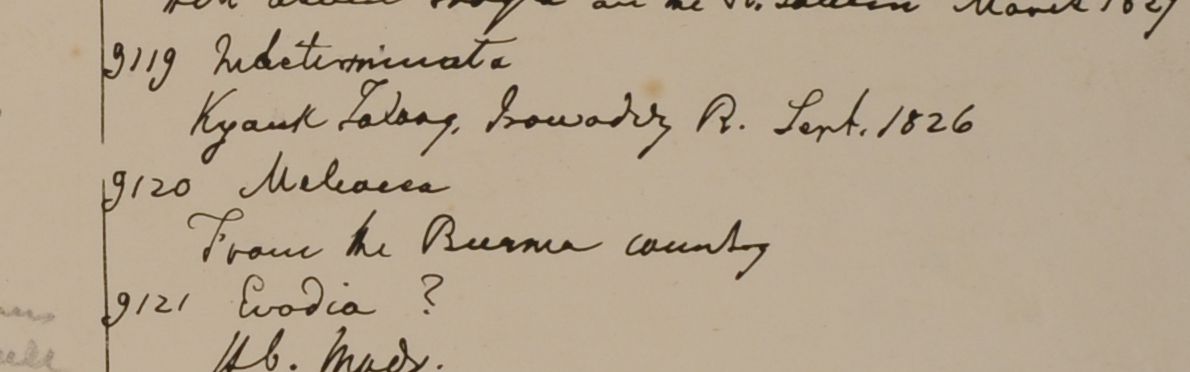 on the R. Salueen March 1827
9119 Indeterminata
Kyauk Talong, Irowaddy R. Sept. 1826
9120 Meliacea
From the Burma country
9121 Evodia ?
Hb. Madr.